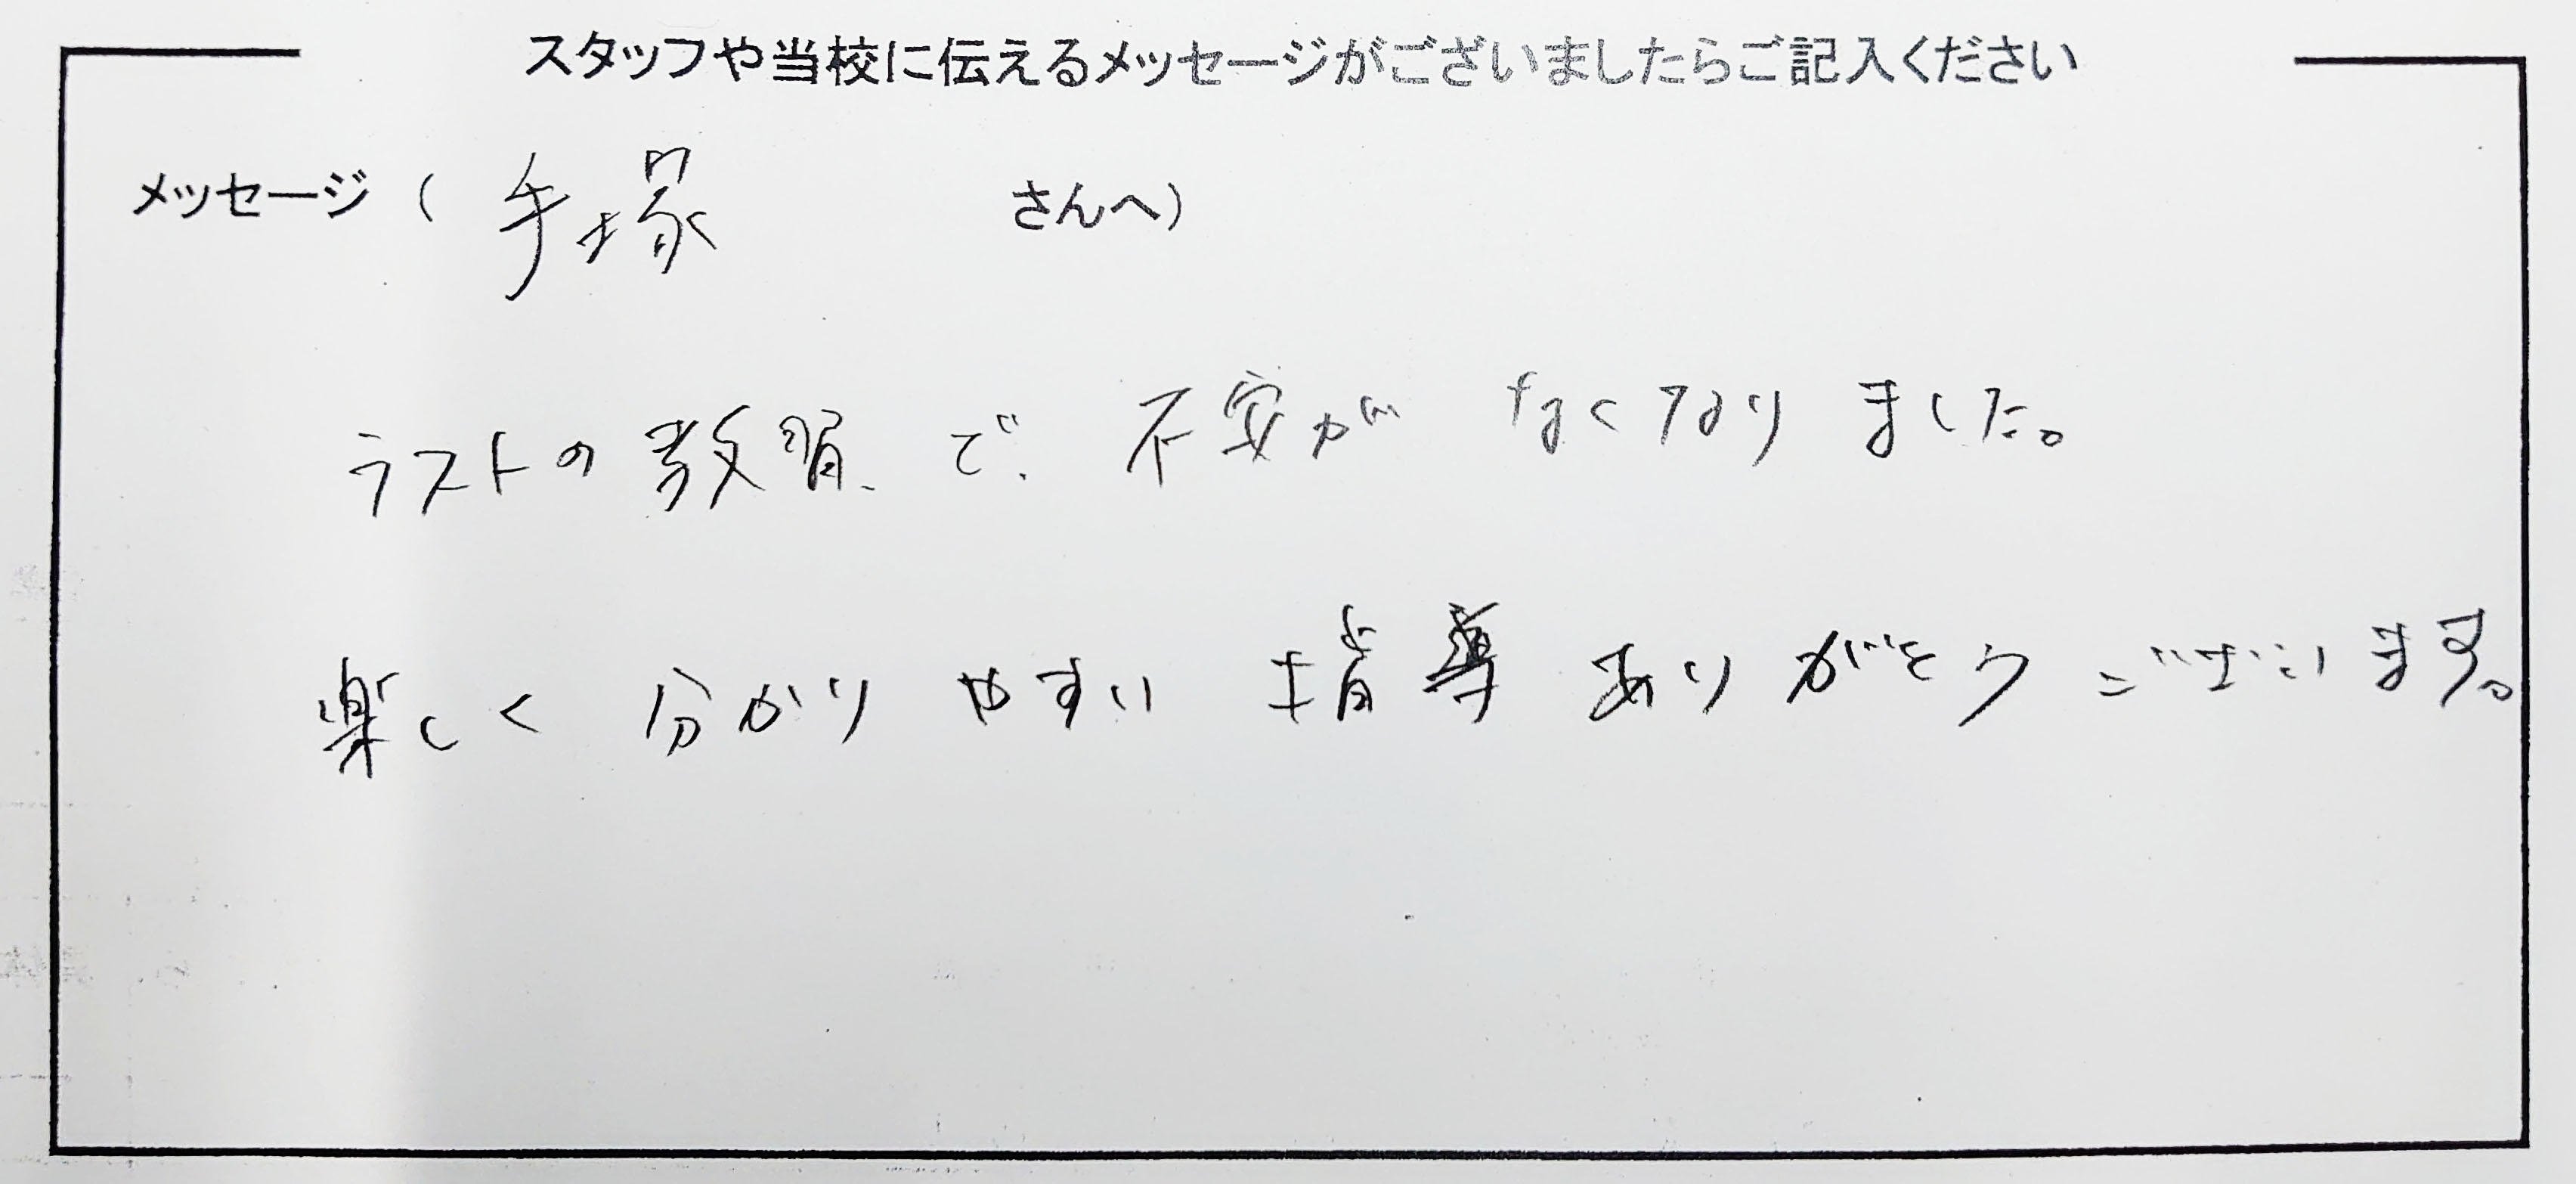 スタッフや当校に伝えるメッセージがございましたらご記入ください
メッセージ（ 手塚 さんへ）
ラストの教習で、不安がなくなりました。
楽しく分かりやすい指導ありがとうございます。